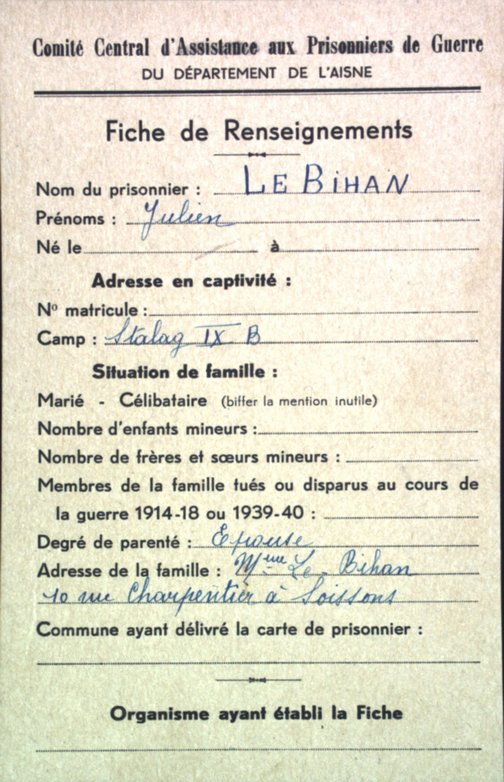 Comité Central d'Assistance aux Prisonniers de Guerre
DU DÉPARTEMENT DE L'AISNE
Fiche de Renseignements
Nom du prisonnier : LE BIHAN
Prénoms : Julien
Né le à
Adresse en captivité :
No matricule :
Camp : Stalag IX B
Situation de famille :
Marié - Célibataire (biffer la mention inutile)
Nombre d'enfants mineurs :
Nombre de frères et sœurs mineurs :
Membres de la famille tués ou disparus au cours de
la guerre 1914-18 ou 1939-40 :
Degré de parenté : Epouse
Adresse de la famille : Mme Le Bihan
10 rue Charpentier à Soissons
Commune ayant délivré la carte de prisonnier :
Organisme ayant établi la Fiche